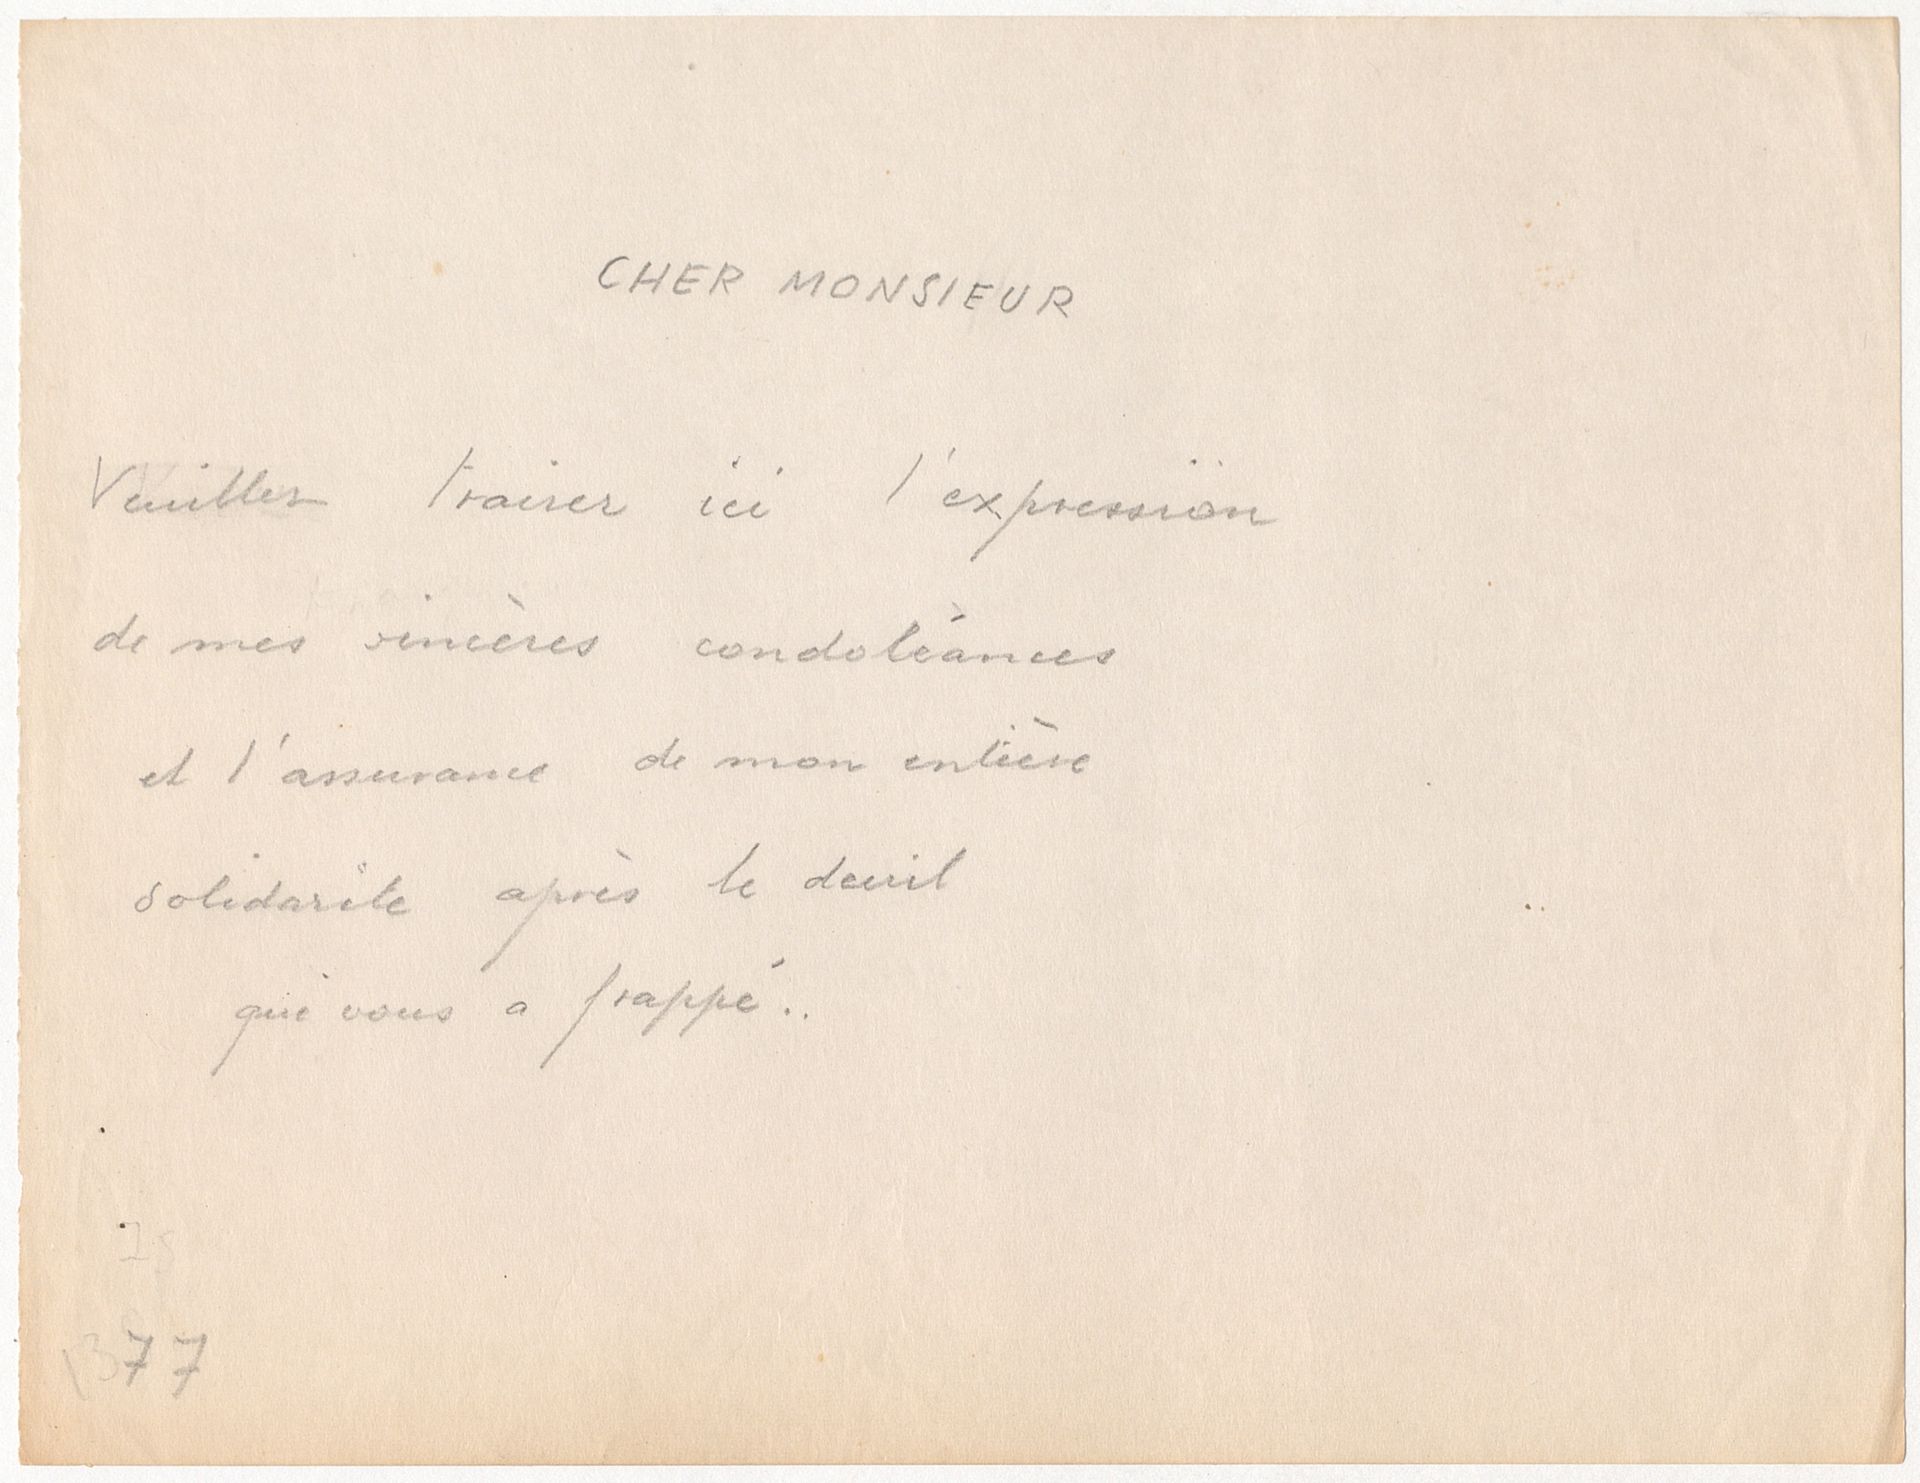 CHER MONSIEUR
Veuillez trairer ici l'expression
de mes sincères condoléances
et l'assurance de mon entière
solidarite après le deuil
qui vous a frappé..
77